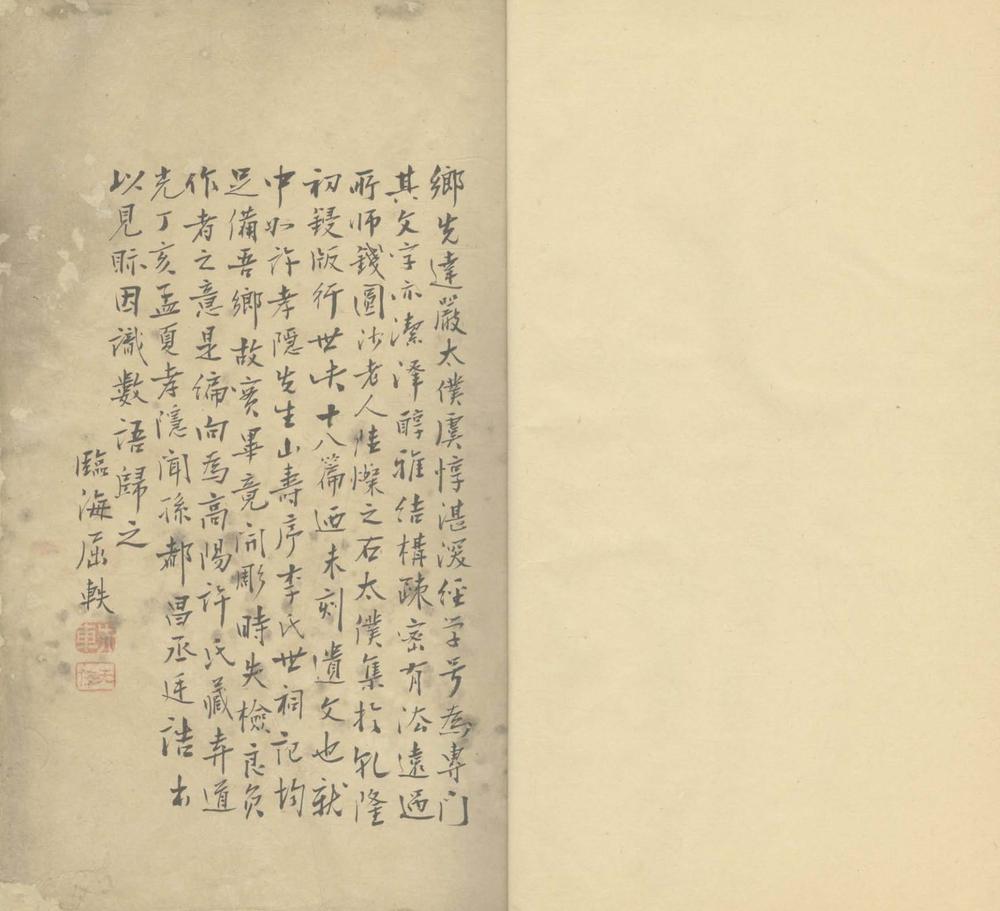 鄉先達嚴太僕虞惇湛深經学号為專门
其文字亦潔淨醇雅結構疎密有法遠過
所师錢圓沙老人陸燦之右太僕集於乹隆
初鋟版行世失十八篇迺未刻遺文也就
中如许孝隱先生山壽序李氏世祠记均
足備吾鄉故實畢竟開彫時失檢良負
作者之意是编向為高陽许氏藏弆道
光丁亥孟夏孝隱聞孫都昌丞廷誥出
以見眎因識數语歸之
臨海屈軼